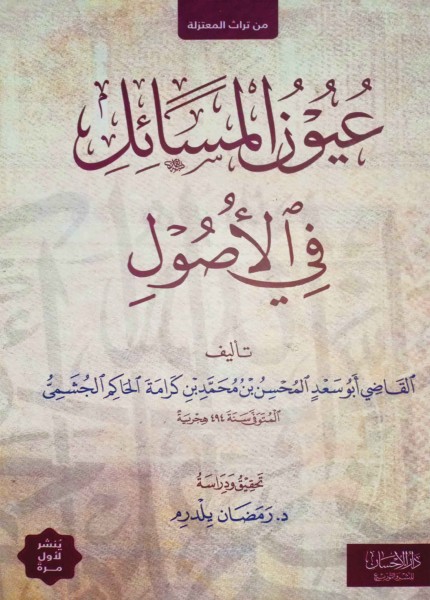 من تراث المعتزلة
عُيُونُ المَسَائِلِ
فِي الأُصُولِ
تأليف
القَاضِي أَبُو سَعْدٍ المُحَسِّنُ بْنُ مُحَمَّدِ بْنِ كَرَامَةَ الحَاكِمِ الجُشَمِيُّ
المُتَوَفَّى سَنَةَ ٤٩٤ هِجْرِيَّةً
تَحْقِيقُ وَدِرَاسَةُ
د. رَمَضَان يِلْدرِم
يُنشر
لأول
مرة
دار الإحسان
للنشر والتوزيع